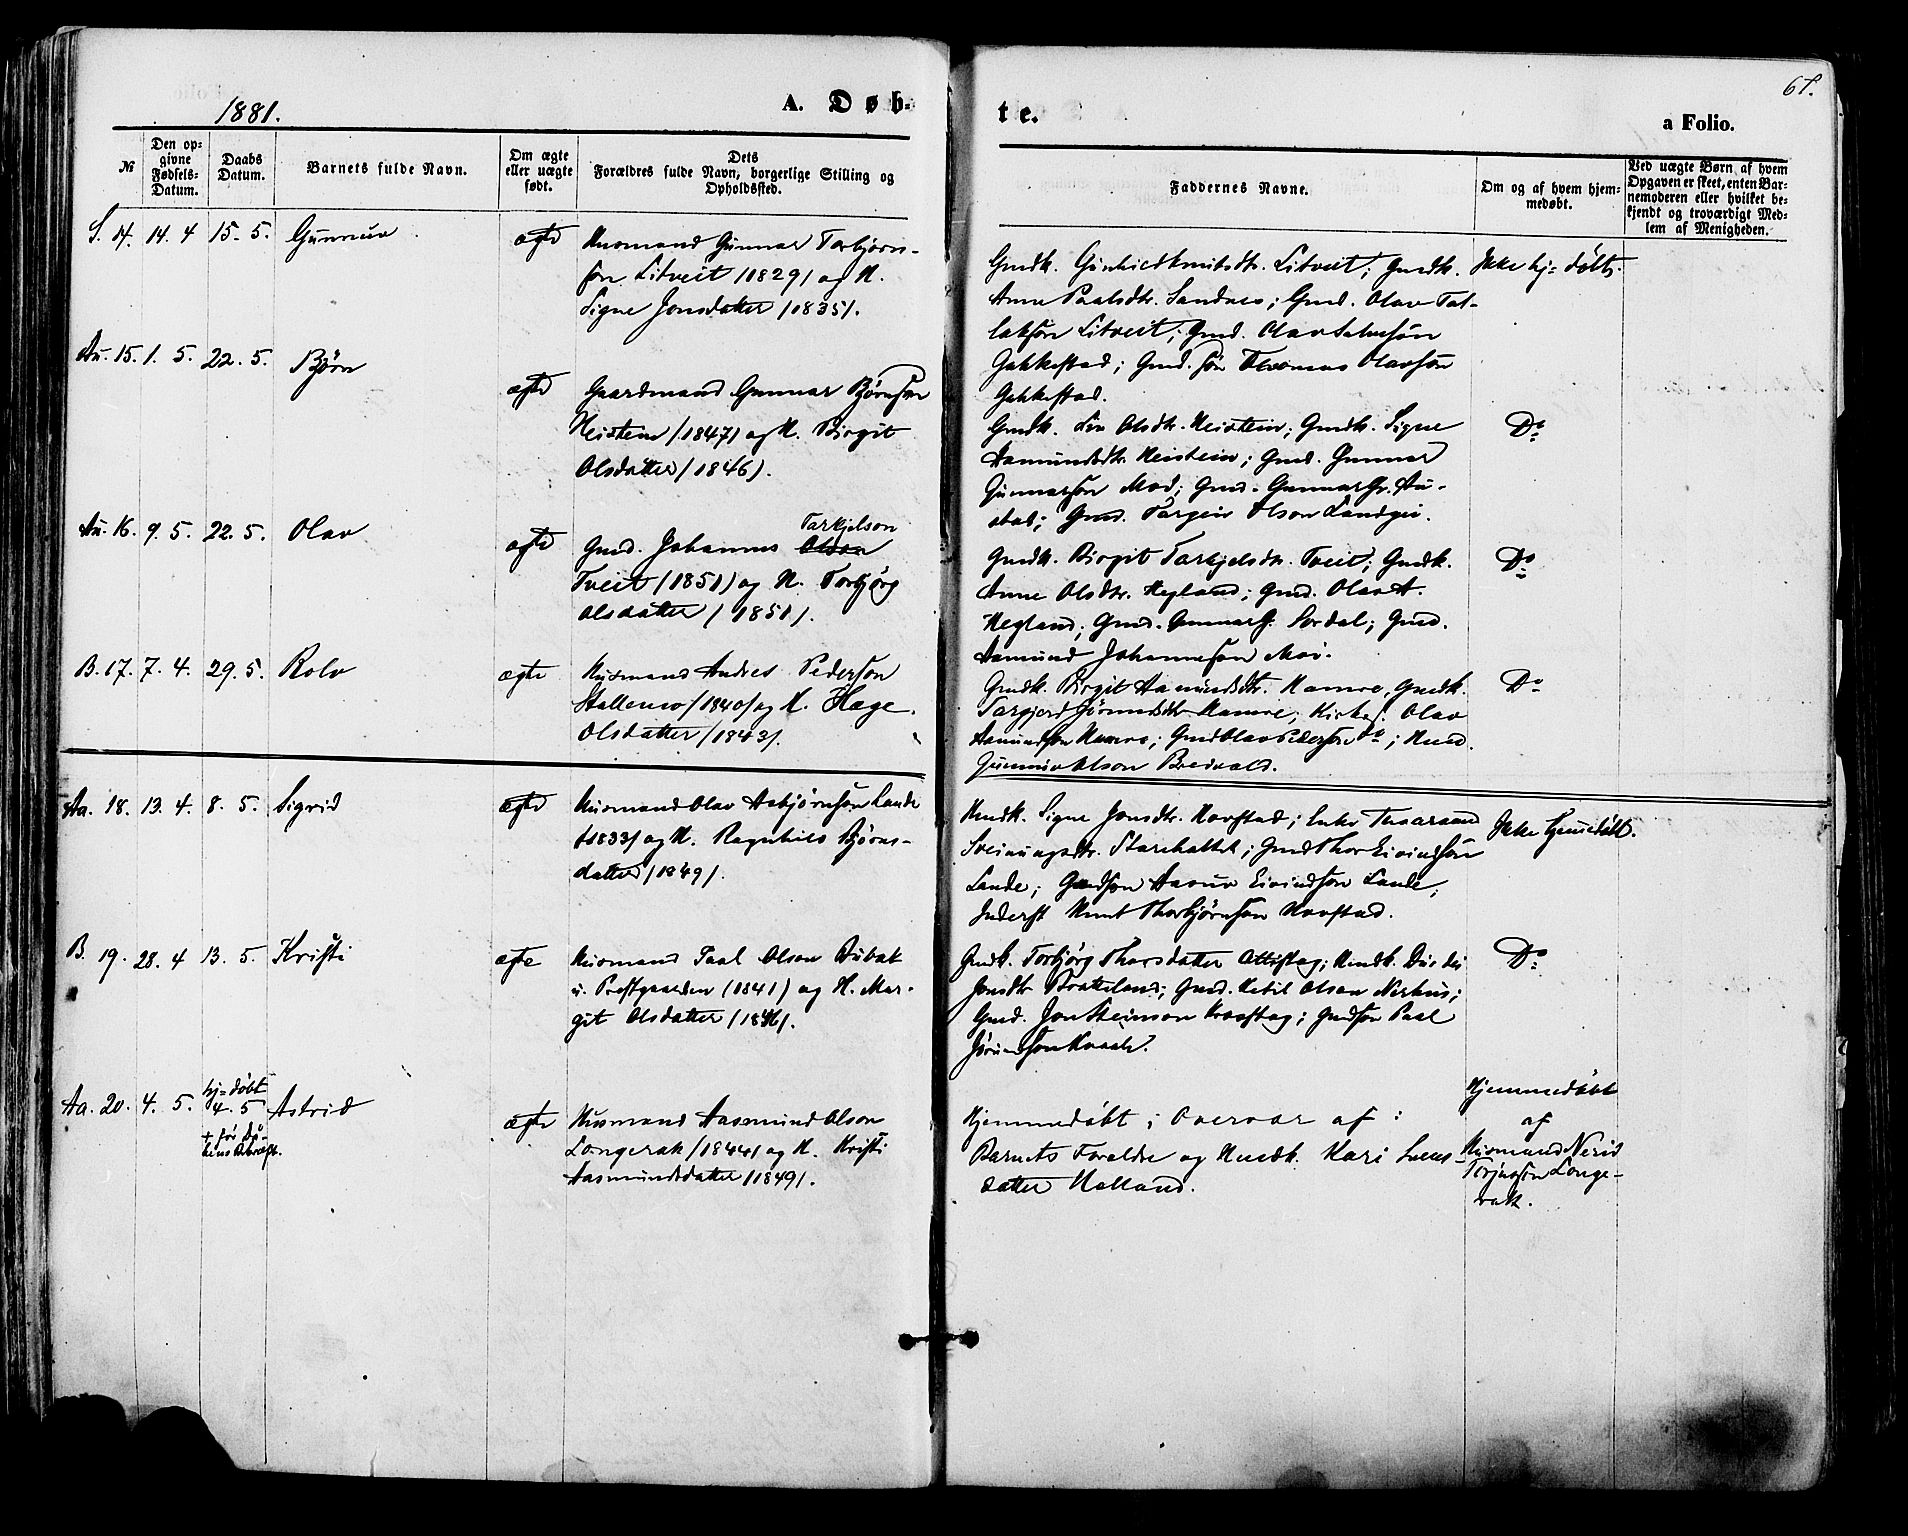 67.
1881.
A. Døb-
te.
a Folio.
№
Den op-
givne
Fødsels-
Datum.
Daabs
Datum.
Barnets fulde Navn.
Om ægte
eller uægte
født.
Dets
Forældres fulde Navn, borgerlige Stilling og
Opholdssted.
Faddernes Navne.
Om og af hvem hjem-
medøbt.
Ved uægte Børn af hvem
Opgaven er skeet, enten Bar-
nemoderen eller hvilket be-
kjendt og troværdigt Med-
lem af Menigheden.
S. 14. 14. 4 15. 5. Gunnuv ægte
Husmand Gunnar Torbjørns-
søn Litveit /1829/ og H.
Signe Jonsdatter /1835/.
Gmdk. Litveit; Gmdk.
Anne Paalsdtr. Sandnes; Gmd. Olav Tal-
laksøn Litveit; Gmd. Olav
; Gmd. søn Thomas Olavsøn
Ikke hj=døbt.
Au. 15. 1. 5. 22. 5. Bjørn ægte
Gaardmand Gunnar Bjørnsøn
Heistein /1847/ og H. Birgit
Olsdatter /1846).
Gmdk. Liv Olsdtr. Heistein; Gmdk. Signe
Aamundsdtr. Heistein; Gmd. Gunnar
Gunnarsøn Moi; Gmd. Gunnar G. Au-
stad; Gmd. Targeir Olson Landgei.
Do
Au. 16. 9. 5. 22. 5. Olav ægte
Tarkjelson
Gmd. Johannes Olson
Tveit (1851) og H. Torbjørg
Olsdatter /1851/.
Gmdk. Birgit Tarkjelsdtr. Tveit; Gmdk.
Anne Olsdtr. Hegland; Gmd. Olav A.
Hegland; Gmd. Gunnar G. Sordal; Gmd.
Aamund Johannesøn Moi.
Do
B. 17. 7. 4. 29. 5. Rolv ægte
Husmand Andres Pedersøn
Stallemo /1840/ og H. Hæge
Olsdatter /1843/.
Gmdk. Birgit Aamundsdtr. Hamre, Gmdk.
Targjerd Jørundsdtr Hamre; Kirkes. Olav
Aamundsøn Hamre; Gmd Olav Pedersøn Do; Husmd.
Gunnuv Olson Breivald.
Do
Aa. 18. 13. 4. 8. 5. Sigrid ægte
Husmand Olav Asbjørnsøn Lande
/1833/ og H. Ragnhild Bjørns-
datter /1849/.
Husdk. Signe Jonsdtr. Harstad; Enke
Sveinungsdtr. ; Gmd Thor Eivindsøn
Lande; Gmdsøn Eivindsøn Lande;
Inderst Knut Thorbjørnsøn Harstad.
Ikke hjemmedøbt.
B. 19. 28. 4 13. 5. Kristi ægte
Husmand Paal Olson Dubak
u. Prestgaarden (1841) og H. Mar-
git Olsdatter /1846/.
Gmdk. Torbjørg Thorsdatter ; Husdk.
Jonsdtr Bratteland; Gmd. Ketil Olson Nerhus;
Gmd. Jon Steinson ; Gmdsøn Paal
Jørundsøn Kvaale.
Do
Aa. 20. 4. 5.
hj=døbt
4. 5
+ før Då-
bens Bekræft.
Astrid ægte
Husmand Aasmund Olson
Longerak /1844/ og H. Kristi
Aasmundsdatter /1849/.
Hjemmedøbt; Overvær af:
Barnets Foreldre og Husdk. Kari
datter Halland.
Hjemmedøbt
af
Husmand Nerid
Terjussøn Longe-
rak.